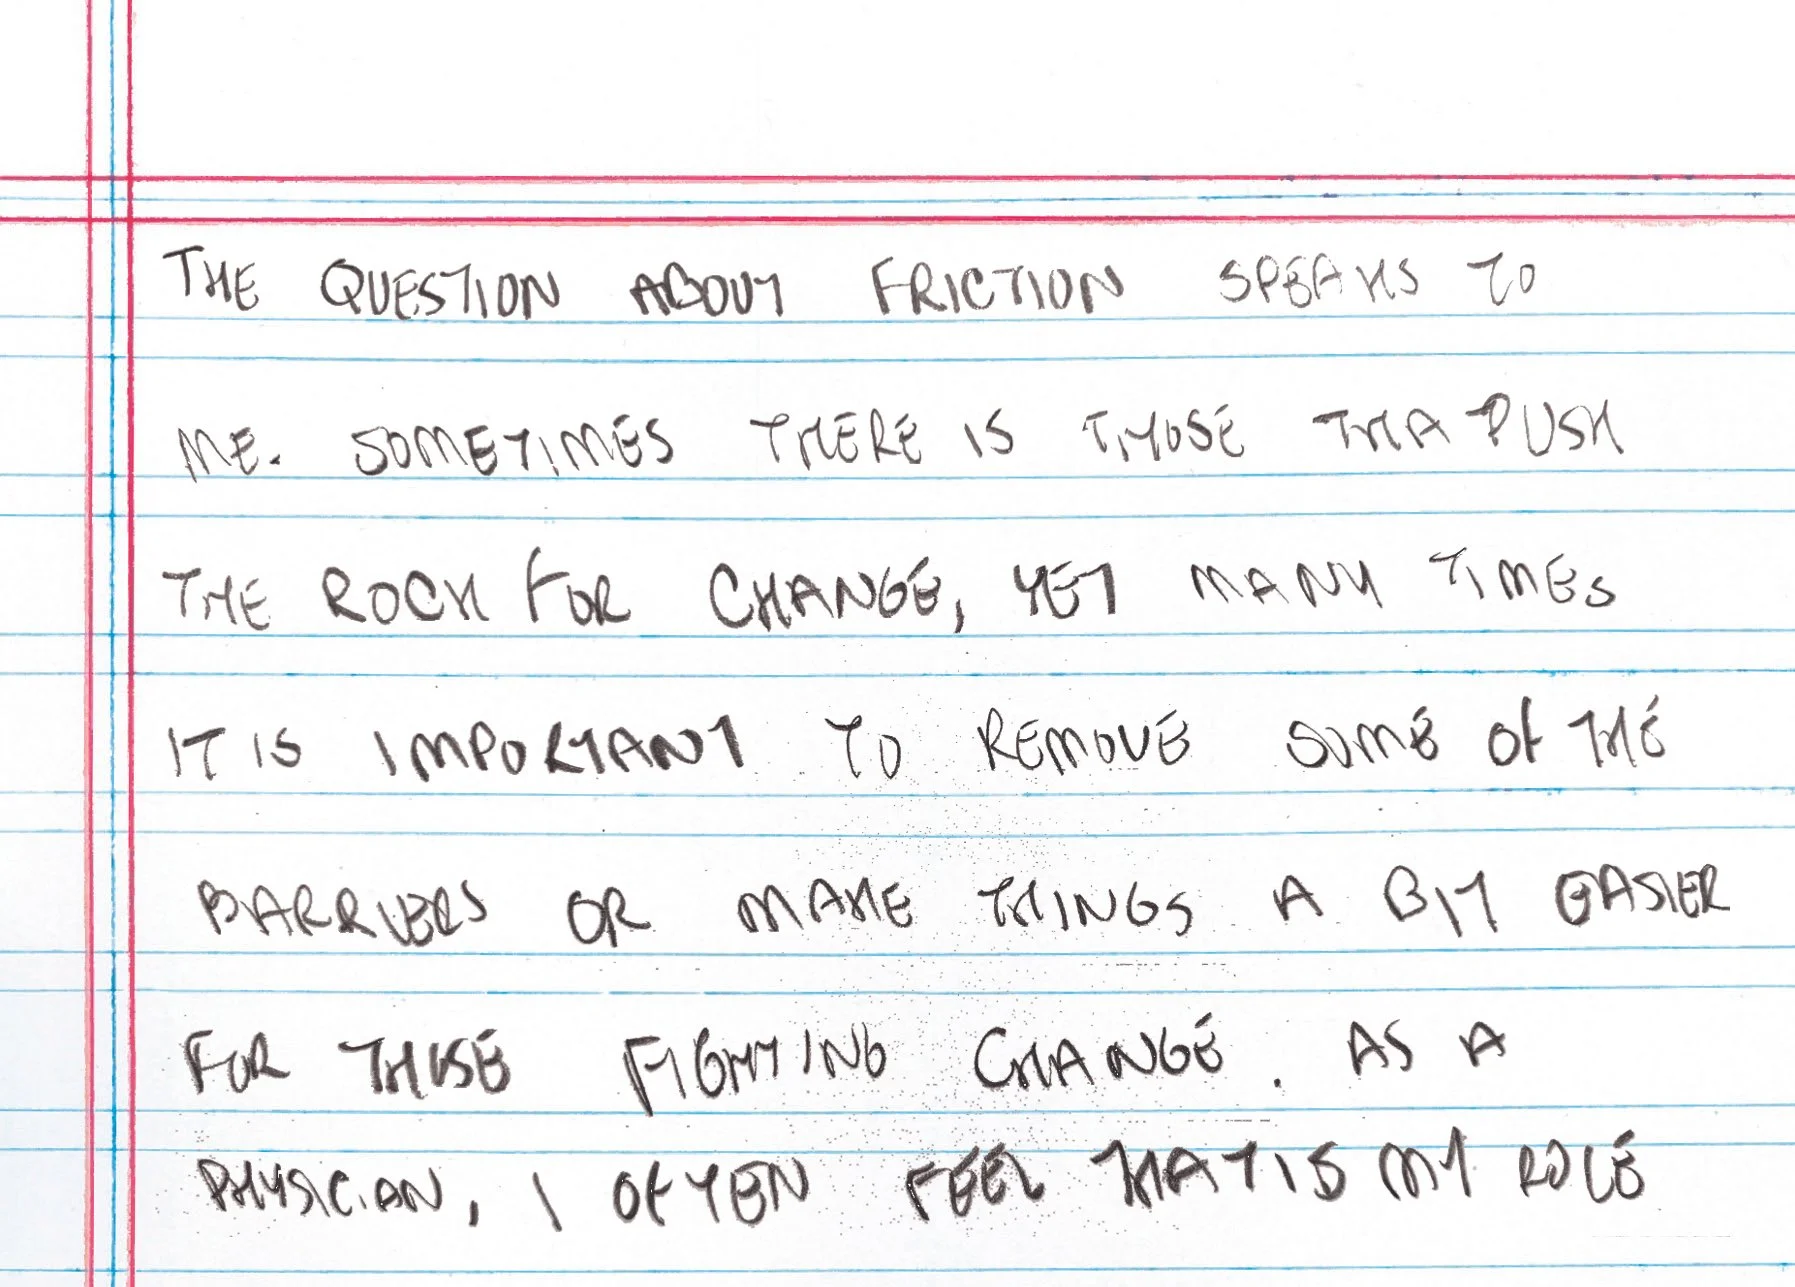 THE QUESTION ABOUT FRICTION SPEAKS TO
ME. SOMETIMES THERE IS THOSE THA PUSH
THE ROCK FOR CHANGE, YET MANY TIMES
IT IS IMPORTANT TO REMOVE SOME OF THE
BARRIERS OR MAKE THINGS A BIT EASIER
FOR THOSE FIGHTING CHANGE. AS A
PHYSICIAN, I OFTEN FEEL THAT IS MY ROLE